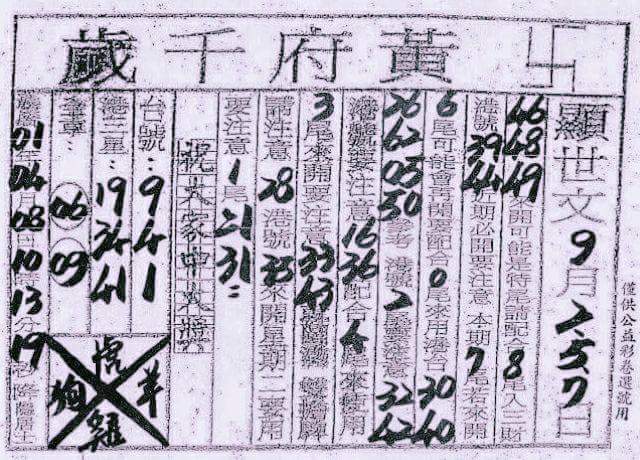 卐黃府千歲
顯世文9月2.5.7日
46 48 49 開可能是特尾號配合8尾入三財
港號39 44近期必開要注意 本期7尾若來開
6尾可能會再開要配合0尾來用港台30 40
26 62 05 50參考 港號2尾號要注意32 42
港號要注意16 36配合4尾來使用
3尾來開要注意33 43
請注意28港號35來開星期二要用
要注意1尾21 31=
祝大家中大獎
台號:9 4 1
港三星:19 34 41
06 09
01年04月08日10時13分19秒降隱居士
虎 羊 狗 雞
僅供公益彩卷選號用